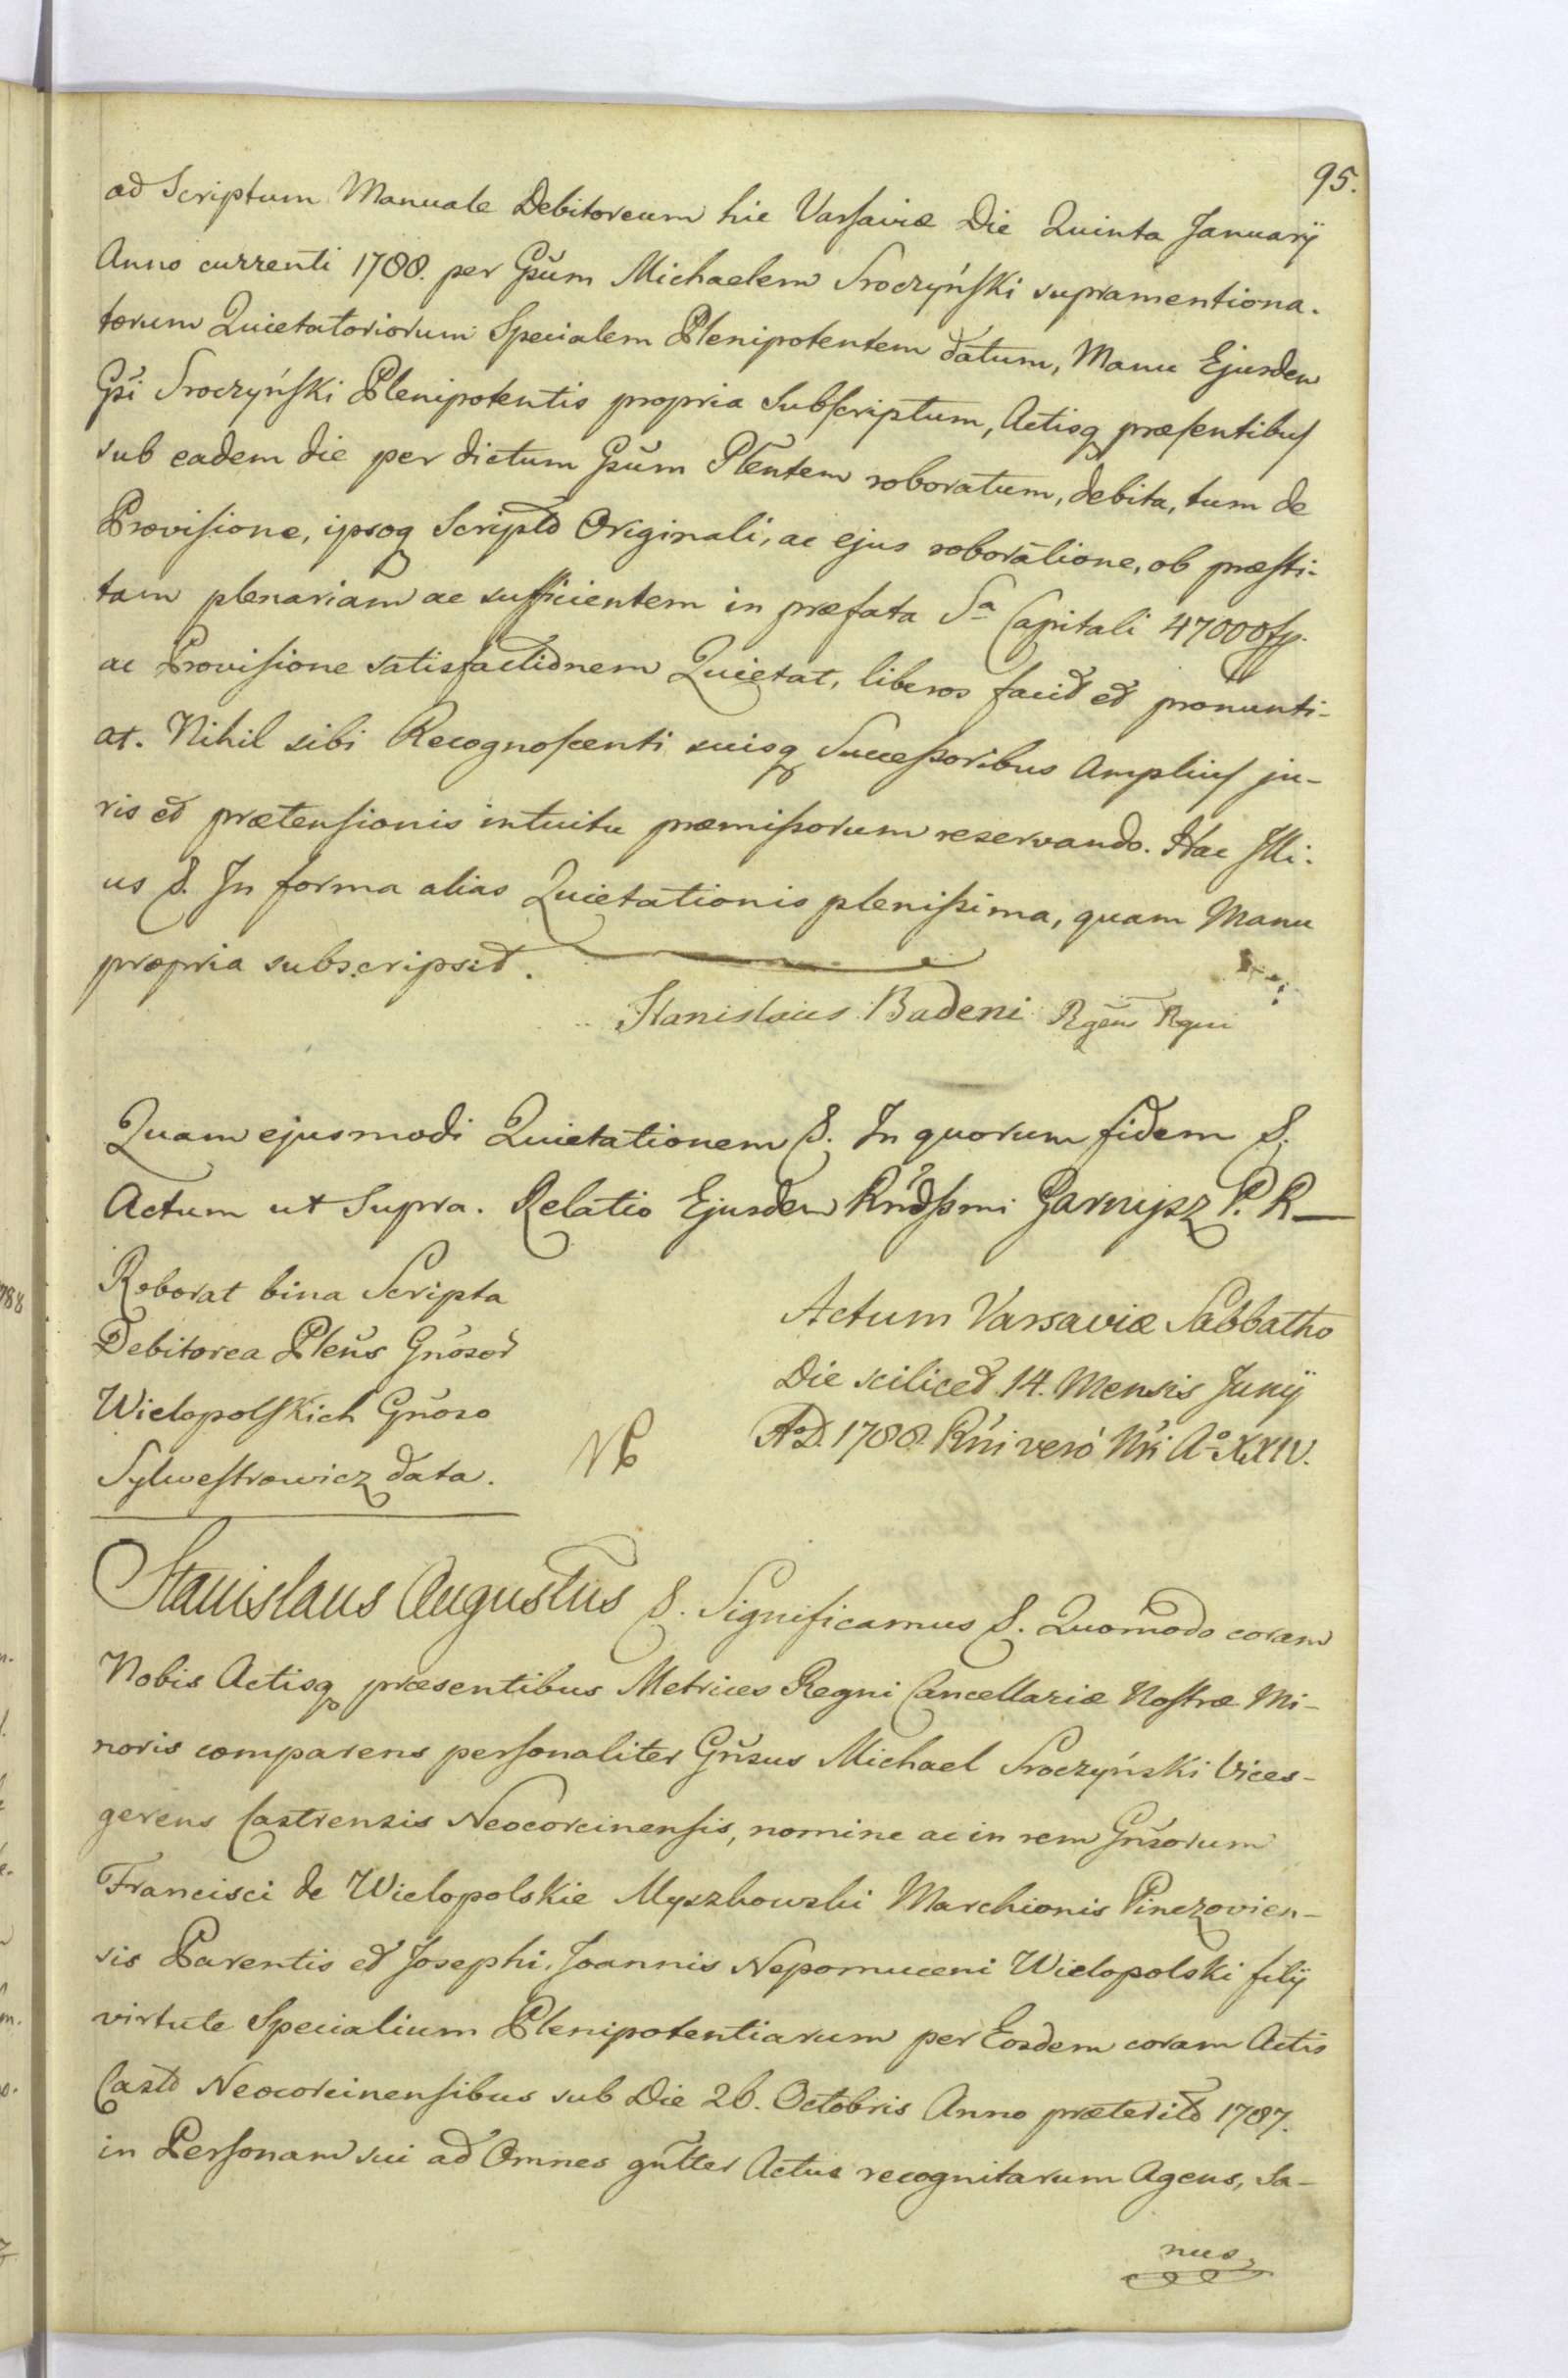 95.
ad Scriptum Manuale Debitoreum hic Varsaviæ Die Quinta Januarÿ
Anno currenti 1788. per Gsũm Michaelem Sroczyński supramentiona-
torum Quietatoriorum Specialem Plenipotentem datum, Manu Ejusdem
Gsi Sroczyński Plenipotentis propria Subscriptum, Actisq præsentibus
sub eadem die per dictum Gsũm Pleñtem roboratum, debita, tum de
Provisione, ipsoq Scripto Originali, ac ejus roboratione, ob præsti-
tam plenariam ac sufficientem in præfata Sa Capitali 47000 fp.
ac Provisione satisfactionem Quietat, liberos facit et pronunti-
at. Nihil sibi Recognoscenti suisq Successoribus Amplius ju-
ris et prætensionis intuitu præmissorum reservando. Hac Illi-
us &. In forma alias Quietationis plenissima, quam Manu
propria subscripsit.
Stanislaus Badeni Rgens Rgni
Quam ejusmodi Quietationem &. In quorum fidem &.
Actum ut Supra. Relatio Ejusdem Rñdssmi Garnysz P. R
Roborat bina Scripta
Debitorea Pleñs Gñosor
Wielopolskich Gñoso
Sylwestrowicz data.
NB
Actum Varsaviæ Sabbatho
Die scilicet 14. Mensis Junÿ
A.D. 1788. Rñi vero Nri Ao XXIV.
Stanislaus Augustus &. Significamus &. Quomodo coram
Nobis Actisq præsentibus Metrices Regni Cancellariæ Nostræ Mi-
noris comparens personaliter Gñsus Michael Sroczyński Vices-
gerens Castrensis Neocorcinensis, nomine ac in rem Gñsorum
Francisci de Wielopolskie Myszkowski Marchionis Pinczovien-
sis Parentis et Josephi, Joannis Nepomuceni Wielopolski filÿ
virtute Specialium Plenipotentiarum per Eosdem coram Actis
Casto Neocorcinensibus sub Die 26. Octobris Anno præterito 1787.
in Personam sui ad Omnes gñlter Actus recognitarum Agens, Sa-
nus